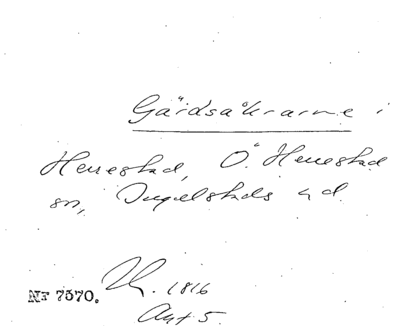 Gårdsåkrarne i
Herrestad, Ö. Herrestad
sn, Ingelstads hd.
NF 7570. 1816
Akt 5.